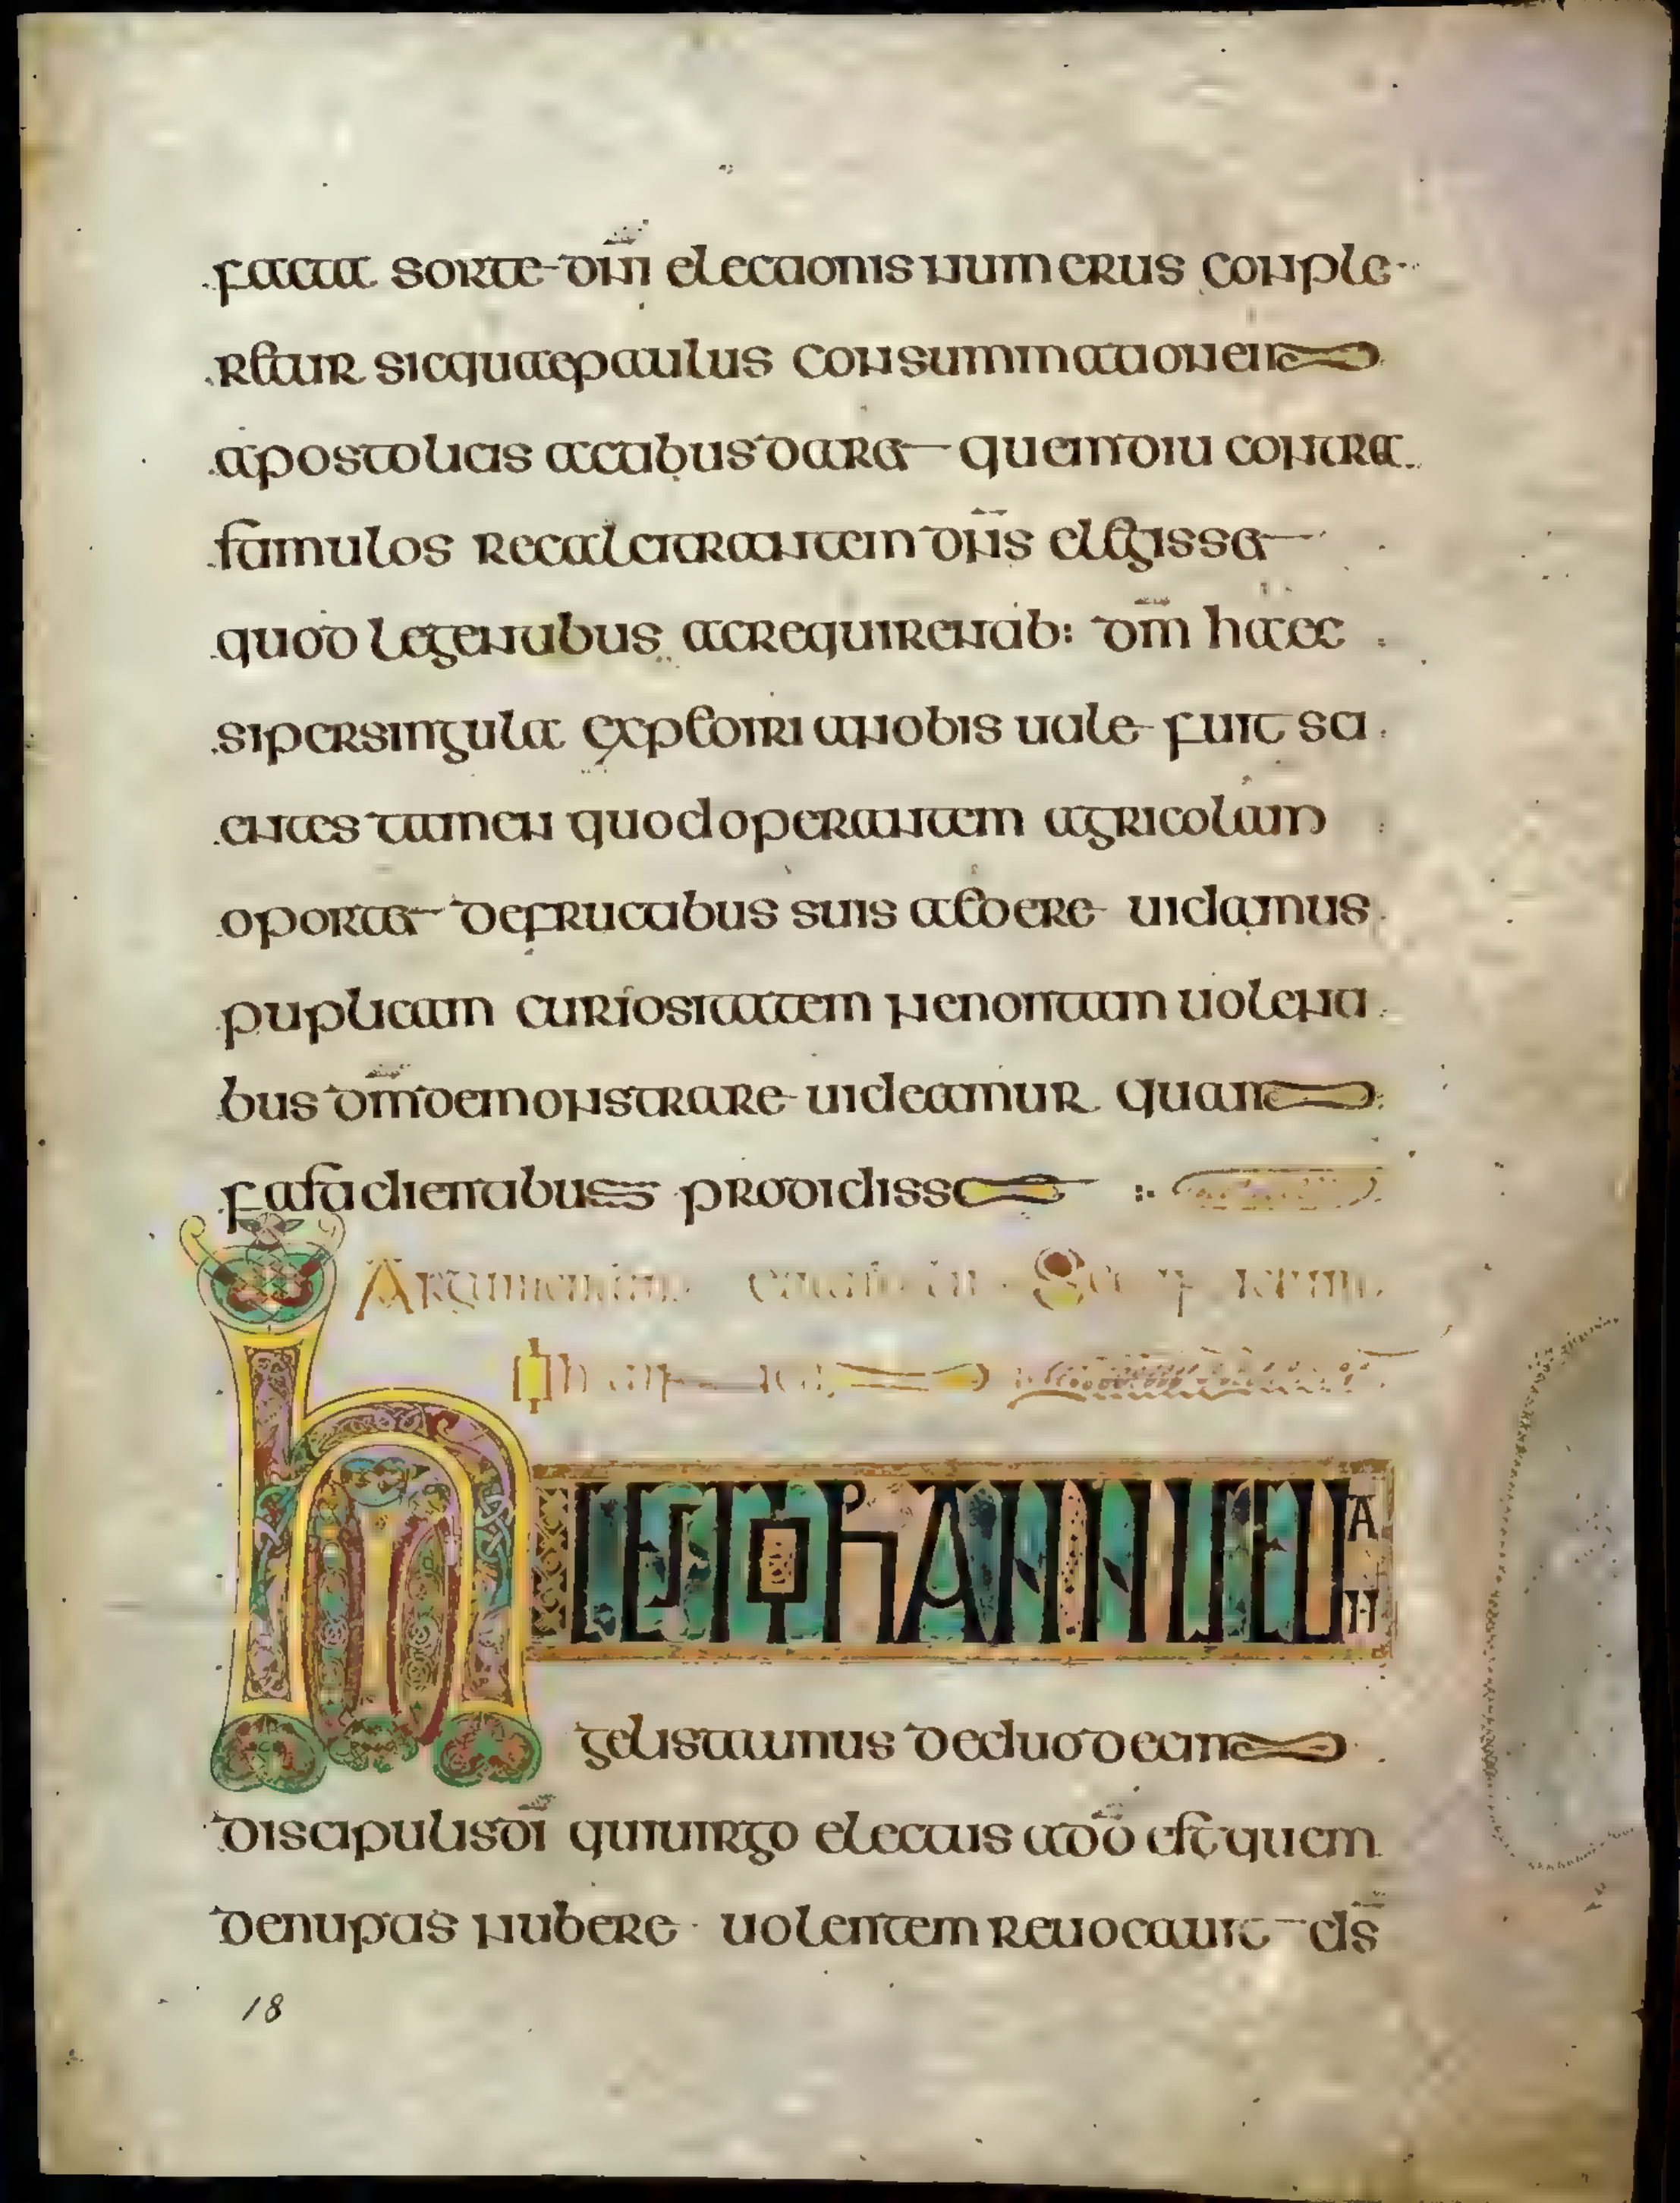 facta sorte dñi electionis numerus conple
retur sicquae paulus consummationem
apostolicis actibus daret quem diu contra
famulos recalcitrantem dñs elegisset
quod legentibus ac requirentib: dm̄ haec
si per singula expediri a nobis uale fuit sci
entes tamen quod operantem agricolam
oportet de fructibus suis aedere uidamus
puplicam curiositatem ne non tam uolenti
bus dm̄ demonstrare uideamur quam
fastidientibus prodidisse
Argumentum
HIC EST IOHANNIS EUAN
gelista unus de duodecim
discipulis dī qui uirgo electus a dō est quem
de nuptas nubere uolentem reuocauit ds̄
18